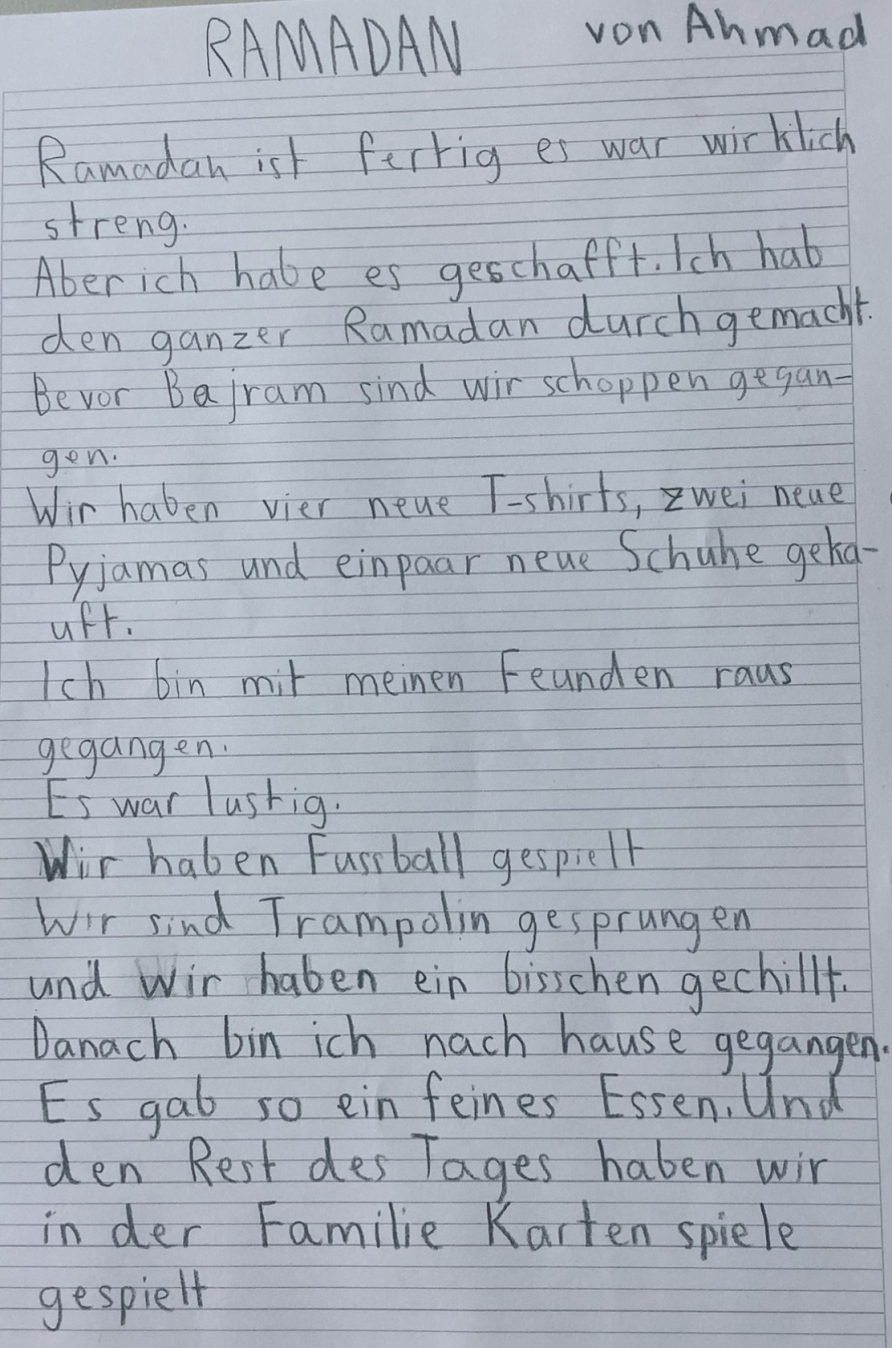 RAMADAN von Ahmad
Ramadan ist fertig es war wirklich
streng.
Aber ich habe es geschafft. Ich hab
den ganzer Ramadan durchgemacht.
Bevor Bajram sind wir schoppen gegan-
gen.
Wir haben vier neue T-shirts, zwei neue
Pyjamas und einpaar neue Schuhe geka-
uft.
Ich bin mit meinen Feunden raus
gegangen.
Es war lustig.
Wir haben Fussball gespielt
Wir sind Trampolin gesprungen
und wir haben ein bisschen gechillt.
Danach bin ich nach hause gegangen.
Es gab so ein feines Essen. Und
den Rest des Tages haben wir
in der Familie Karten spiele
gespielt